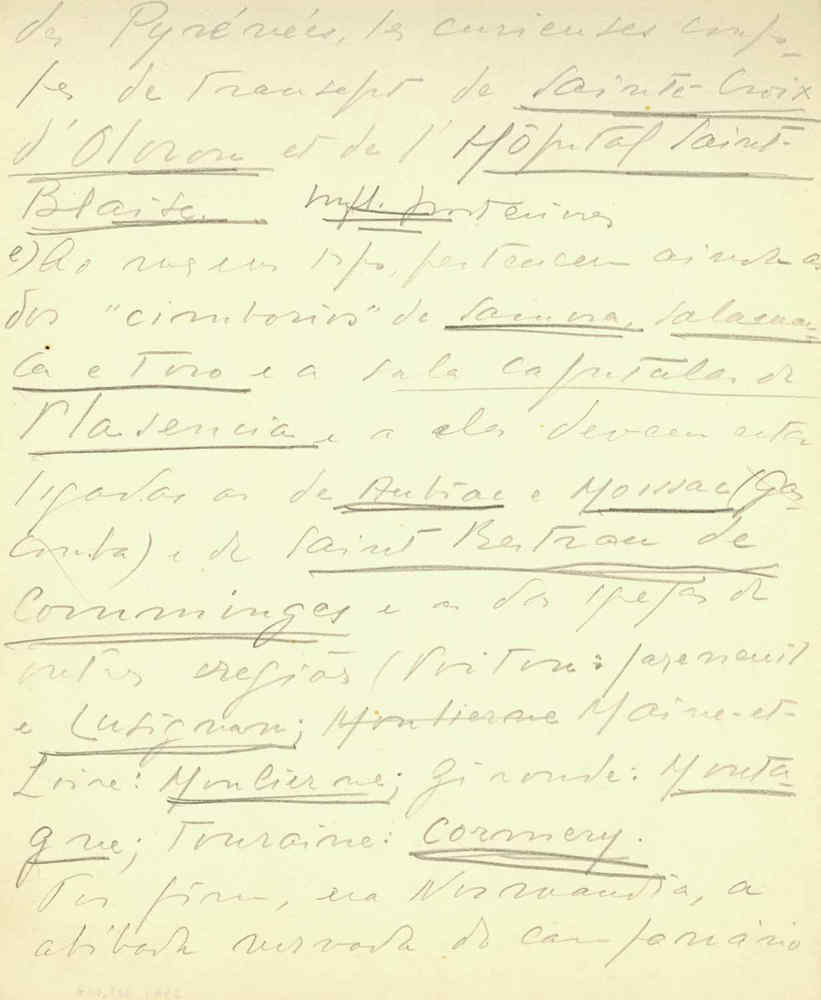 des Pyrénées, les curieuses coupo-
les de transept de Sainte-Croix
d'Oloron et de l'Hôpital Saint-
Blaise.
e) Ao mesmo tipo, pertencem ainda as
dos "cimborios" de Samora, Salaman-
ca e Toro e a sala capitular de
Plasencia e a elas devem estar
ligadas as de Aubiac e Moissac (Gas-
conha) e de Saint Bertran de
Comminges e as das igrejas de
outras regiões (Poitou: Jazeneuil
e Lusignan; Moulierne Maine-et-
Loire: Moulierne; Gironde: Monta-
gne; Touraine: Cormery.
Por fim, na Normandia, a
abóbada nervada do campanário